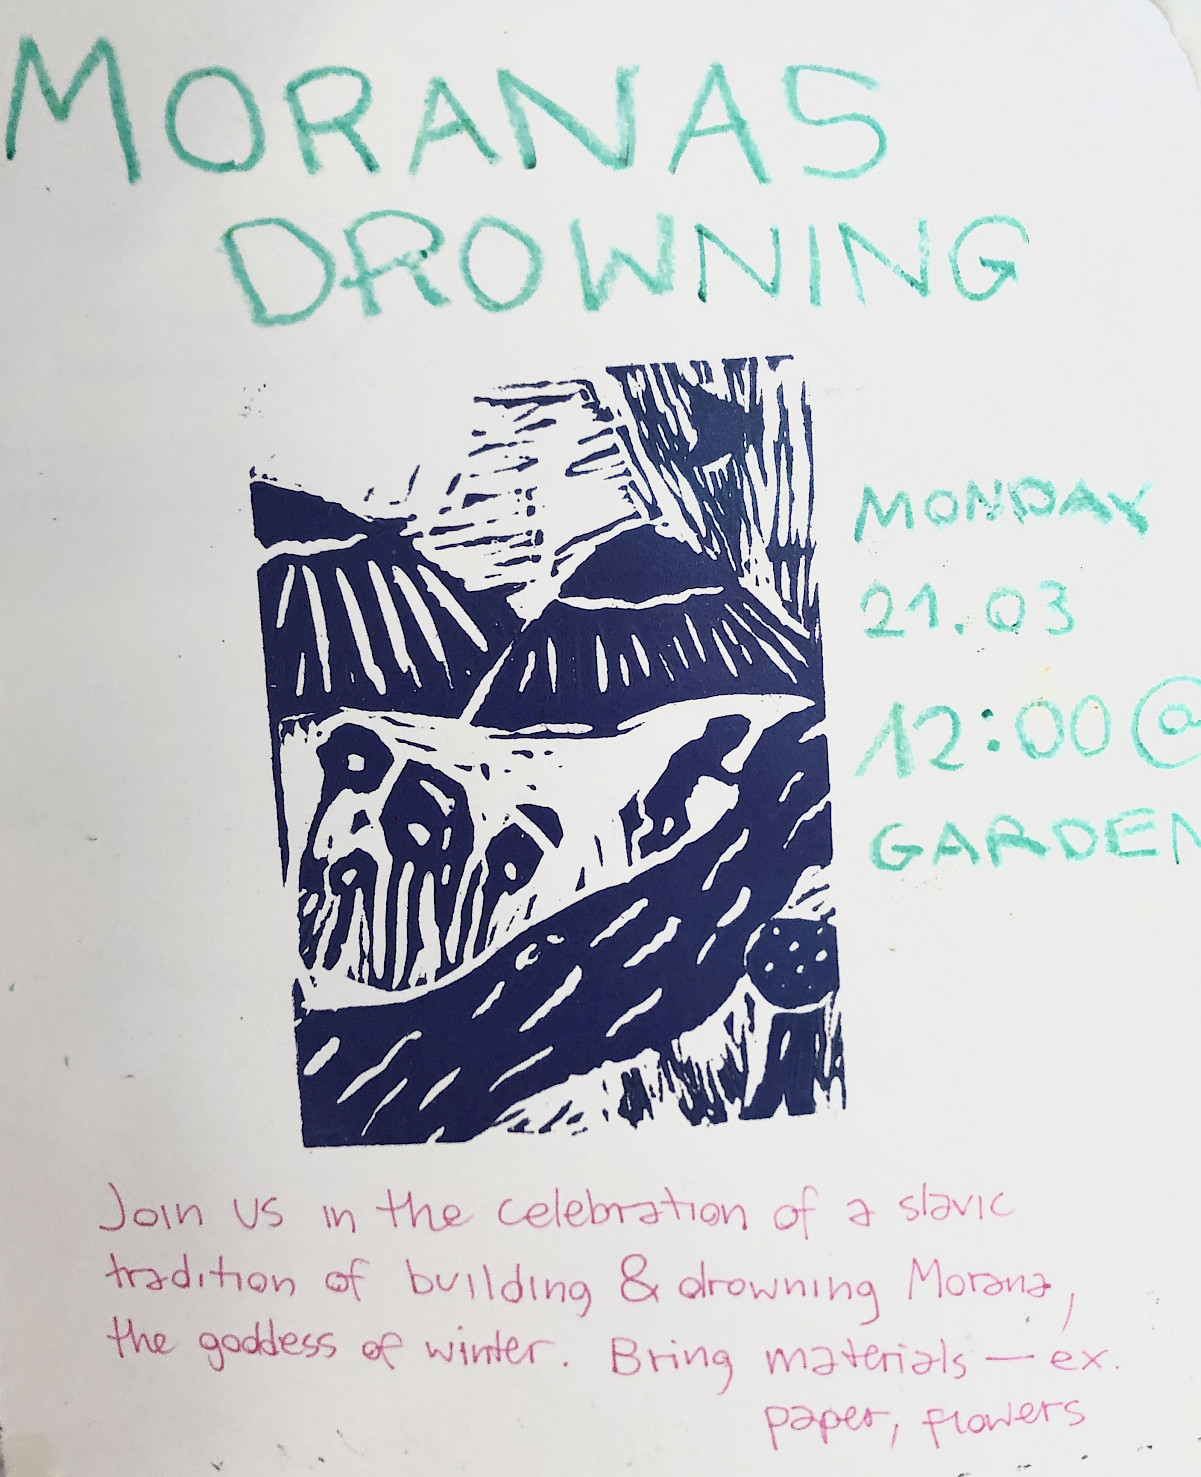 MORANAS
DROWNING
MONDAY
21.03
12:00 @
GARDEN
Join us in the celebration of a slavic
tradition of building & drowning Morana,
the goddess of winter. Bring materials — ex.
paper, flowers